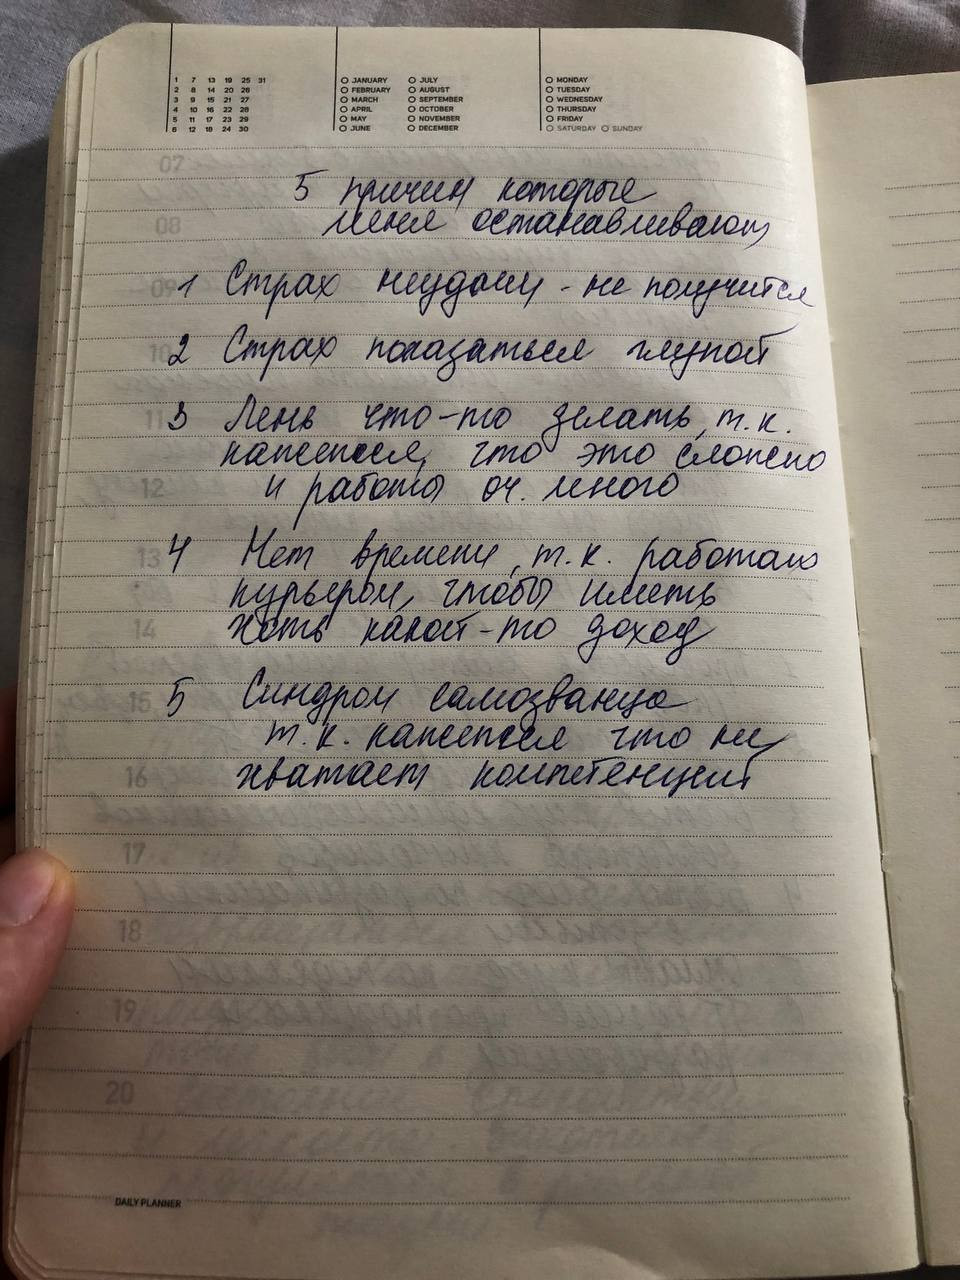 1 7 13 19 25 31
2 8 14 20 26
3 9 15 21 27
4 10 16 22 28
5 11 17 23 29
6 12 18 24 30
JANUARY JULY
FEBRUARY AUGUST
MARCH SEPTEMBER
APRIL OCTOBER
MAY NOVEMBER
JUNE DECEMBER
MONDAY
TUESDAY
WEDNESDAY
THURSDAY
FRIDAY
SATURDAY SUNDAY
07
5 причин которые
08 меня останавливают
09 1 Страх неудачи - не получится
10 2 Страх показаться глупой
11 3 Лень что-то делать, т.к.
кажется, что это сложно
12 и работы оч. много
13 4 Нет времени, т.к. работаю
курьером, чтобы иметь
14 хоть какой-то доход
15 5 Синдром самозванца
т.к. кажется что не
16 хватает компетенций
17
18
19
20
DAILY PLANNER